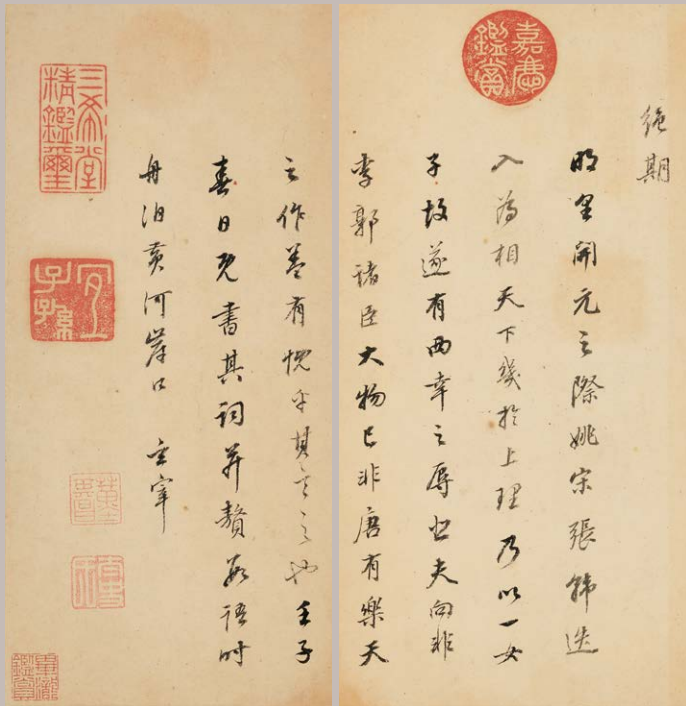 絶期
明皇開元之際姚宋張韓迭
入為相天下幾於上理乃以一女
子故遂有西幸之辱悲夫向非
李郭諸臣大物已非唐有樂天
之作蓋有慨乎其言之也壬子
春日既書其詞并贅數語時
舟泊黃河崖口 玄宰
嘉慶鑑賞
三希堂精鑑璽
宜子孫